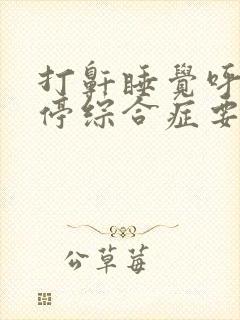 打鼾睡覺呼
停綜合症要
公草莓